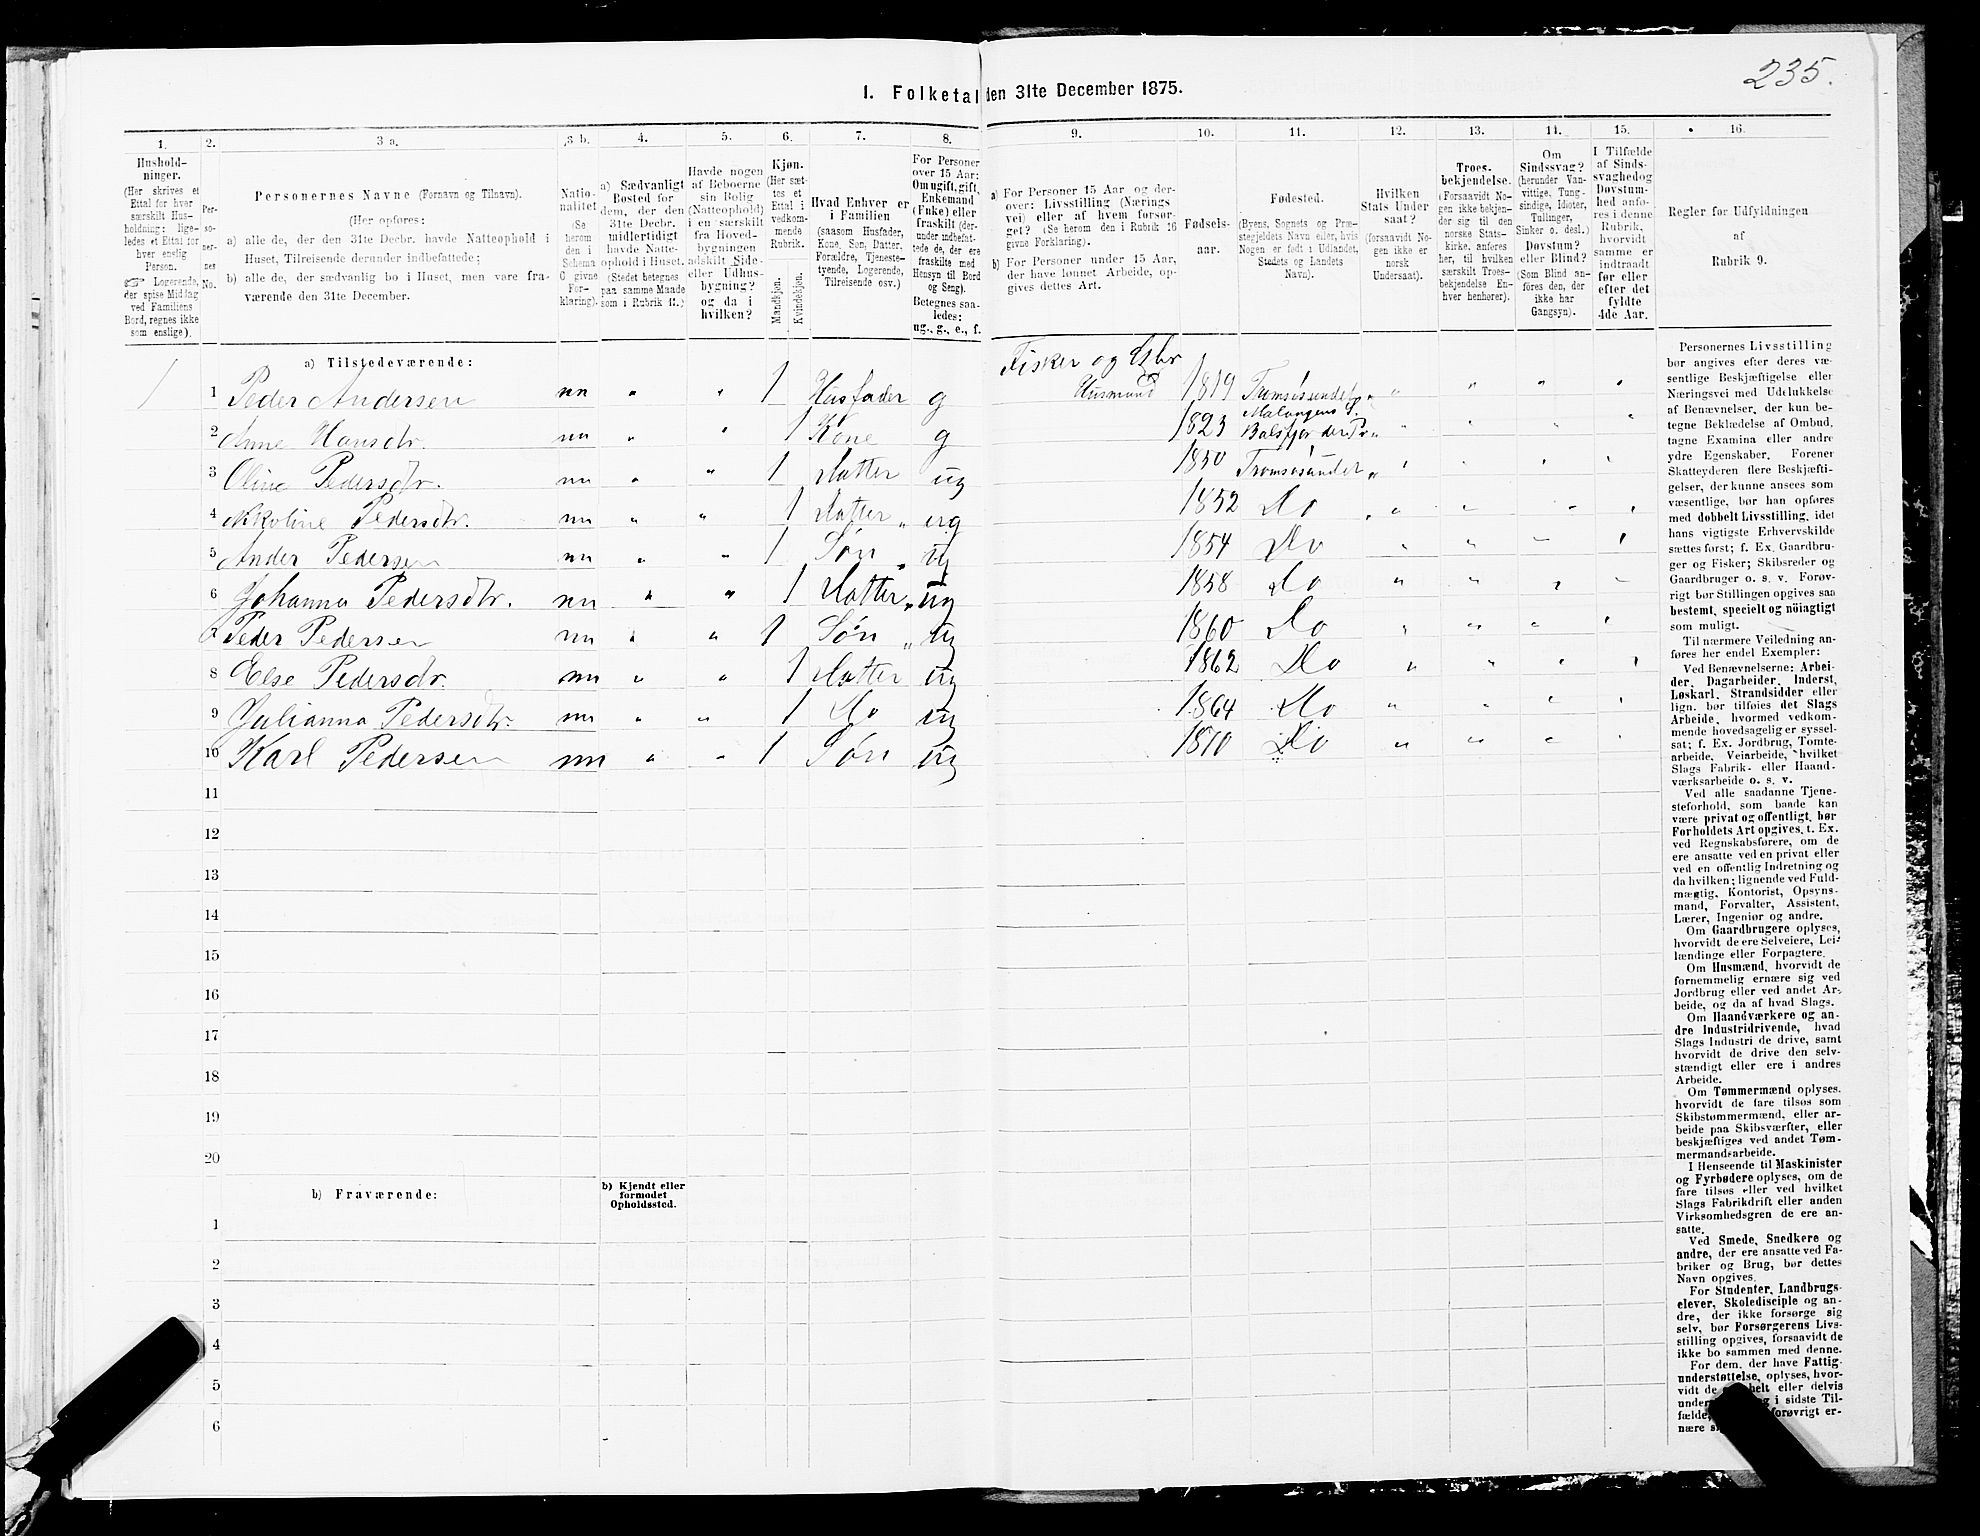 235.
1. Folketal den 31te December 1875.
1. 2. 3 a. 3 b. 4. 5. 6. 7. 8. 9. 10. 11. 12. 13. 14. 15. 16.
Hushold-
ninger.
(Her skrives et
Ettal for hver
særskilt Hus-
holdning; lige-
ledes et Ettal for
hver enslig
Person.
☞ Logerende,
der spise Middag
ved Familiens
Bord, regnes ikke
som enslige).
Per-
so-
ner-
nes
No.
Personernes Navne (Fornavn og Tilnavn).
(Her opføres:
a) alle de, der den 31te Decbr. havde Natteophold i
Huset, Tilreisende derunder indbefattede;
b) alle de, der sædvanlig bo i Huset, men vare fra-
værende den 31te December.
Natio-
nalitet
(Se
herom
den i
Schema
C givne
For-
klaring).
a) Sædvanligt
Bosted for
dem, der den
31te Decbr.
midlertidigt
havde Natte-
ophold i Huset.
(Stedet betegnes
paa samme Maade
som i Rubrik 11.)
Havde nogen
af Beboerne
sin Bolig
(Natteophold)
i en særskilt
fra Hoved-
bygningen
adskilt Side-
eller Udhus-
bygning?
og da i
hvilken?
Kjøn.
(Her sæt-
tes et
Ettal i
vedkom-
mende
Rubrik.
Mandkjøn.
Kvindekjøn.
Hvad Enhver er
i Familien
(saasom Husfader,
Kone, Søn, Datter,
Forældre, Tjeneste-
tyende, Logerende,
Tilreisende osv.)
For Personer
over 15 Aar:
Om ugift, gift,
Enkemand
(Enke) eller
fraskilt (der-
under indbefat-
tede de, der ere
fraskilte med
Hensyn til Bord
og Seng).
Betegnes saa-
ledes:
ug., g., e., f.
a) For Personer 15 Aar og der-
over: Livsstilling (Nærings-
vei) eller af hvem forsør-
get? (Se herom den i Rubrik 16
givne Forklaring).
b) For Personer under 15 Aar,
der have lønnet Arbeide, op-
gives dettes Art.
Fødsels-
aar.
Fødested.
(Byens, Sognets og Præ-
stegjeldets Navn eller, hvis
Nogen er født i Udlandet,
Stedets og Landets
Navn).
Hvilken
Stats Under
saat?
(forsaavidt No-
gen ikke er
norsk
Undersaat).
Troes-
bekjendelse.
(Forsaavidt No-
gen ikke bekjen-
der sig til den
norske Stats-
kirke, anføres
her, til hvilken
særskilt Troes-
bekjendelse En-
hver henhører).
Om
Sindssvag?
(herunder Van-
vittige, Tung-
sindige, Idioter,
Tullinger,
Sinker o. desl.)
Døvstum?
eller Blind?
(Som Blind an-
føres den, der
ikke har
Gangsyn).
I Tilfælde
af Sinds-
svaghed og
Døvstum-
hed anfø-
res i denne
Rubrik,
hvorvidt
samme er
indtraadt
før eller
efter det
fyldte
4de Aar.
Regler for Udfyldningen
af
Rubrik 9.
a) Tilstedeværende:
1 1 Peder Andersen nn " " 1 Husfader g Fisker og Husmand 1819 Tromsøsundet " " " " "
2 Anne Hansdtr. nn " " 1 Kone g 1823 Malangens S. Balsfjorden Pr " " " " "
3 Oline Pedersdtr. nn " " 1 Datter ug 1850 Tromsøsundet " " " " "
4 Nikoline Pedersdtr. nn " " 1 Datter " ug 1852 Do " " " " "
5 Ander Pedersen nn " " 1 Søn " ug 1854 Do " " " "
6 Johanna Pedersdtr. nn " " 1 Datter " ug 1858 Do " " " "
7 Peder Pedersen nn " " 1 Søn " ug 1860 Do " " " "
8 Else Pedersdtr. nn " " 1 Datter ug 1862 Do " " " "
9 Julianna Pedersdtr. nn " " 1 Do ug 1864 Do " " " "
10 Karl Pedersen nn " " 1 Søn ug 1870 Do " " " "
11
12
13
14
15
16
17
18
19
20
b) Fraværende:
b) Kjendt eller
formodet
Opholdssted.
1
2
3
4
5
6
Personernes Livsstilling
bør angives efter deres væ-
sentlige Beskjæftigelse eller
Næringsvei med Udelukkelse
af Benævnelser, der kun be-
tegne Beklædelse af Ombud,
tagne Examina eller andre
ydre Egenskaber. Forener
Skatteyderen flere Beskjæfti-
gelser, der kunne ansees som
væsentlige, bør han opføres
med dobbelt Livsstilling, idet
hans vigtigste Erhvervskilde
sættes først; f. Ex. Gaardbru-
ger og Fisker; Skibsreder og
Gaardbruger o. s. v. Forøv-
rigt bør Stillingen opgives saa
bestemt, specielt og nöiagtigt
som muligt.
Til nærmere Veiledning an-
føres her endel Exempler:
Ved Benævnelserne: Arbei-
der, Dagarbeider, Inderst,
Løskarl, Strandsidder eller
lign. bør tilføies det Slags
Arbeide, hvormed vedkom-
mende hovedsagelig er syssel-
sat; f. Ex. Jordbrug, Tomte-
arbeide, Veiarbeide, hvilket
Slags Fabrik- eller Haand-
værksarbeide o. s. v.
Ved alle saadanne Tjene-
steforhold, som baade kan
være privat og offentligt, bør
Forholdets Art opgives, t. Ex.
ved Regnskabsførere, om de
ere ansatte ved en privat eller
ved en offentlig Indretning og
da hvilken; lignende ved Fuld-
mægtig, Kontorist, Opsyns-
mand, Forvalter, Assistent,
Lærer, Ingeniør og andre.
Om Gaardbrugere oplyses,
hvorvidt de ere Selveiere, Lei-
lændinge eller Forpagtere.
Om Husmænd, hvorvidt de
fornemmelig ernære sig ved
Jordbrug eller ved andet Ar-
beide, og da af hvad Slags.
Om Haandværkere og an-
dre Industridrivende, hvad
Slags Industri de drive, samt
hvorvidt de drive den selv-
stændigt eller ere i andres
Arbeide.
Om Tømmermænd oplyses,
hvorvidt de fare tilsøs som
Skibstømmermænd, eller ar-
beide paa Skibsværfter, eller
beskjæftiges ved andet Tøm-
mermandsarbeide.
I Henseende til Maskinister
og Fyrbødere oplyses, om de
fare tilsøs eller ved hvilket
Slags Fabrikdrift eller anden
Virksomhedsgren de ere an-
satte.
Ved Smede, Snedkere og
andre, der ere ansatte ved Fa-
briker og Brug, bør dettes
Navn opgives.
For Studenter, Landbrugs-
elever, Skoledisciple og an-
dre, der ikke forsørge sig
selv, bør Forsørgerens Livs-
stilling opgives, forsaavidt de
ikke bo sammen med denne.
For dem, der have Fattig-
understøttelse, oplyses, hvor-
vidt de helt eller delvis
under i sidste Til-
fælde, forøvrigt er-
nære